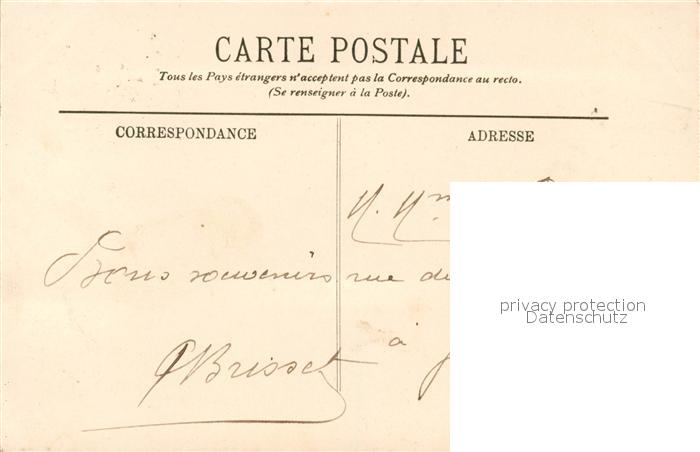 CARTE POSTALE
Tous les Pays étrangers n'acceptent pas la Correspondance au recto.
(Se renseigner à la Poste).
CORRESPONDANCE
ADRESSE
M. Mme
Bons souvenirs
rue de
à
Brisset
privacy protection
Datenschutz